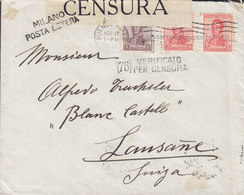 CENSURA
MILANO
POSTA ESTERA
(78) VERIFICATO
PER CENSURA
Monsieur
Alfredo Truchsler
"Blanc Castell"
Lausañe
Suiza